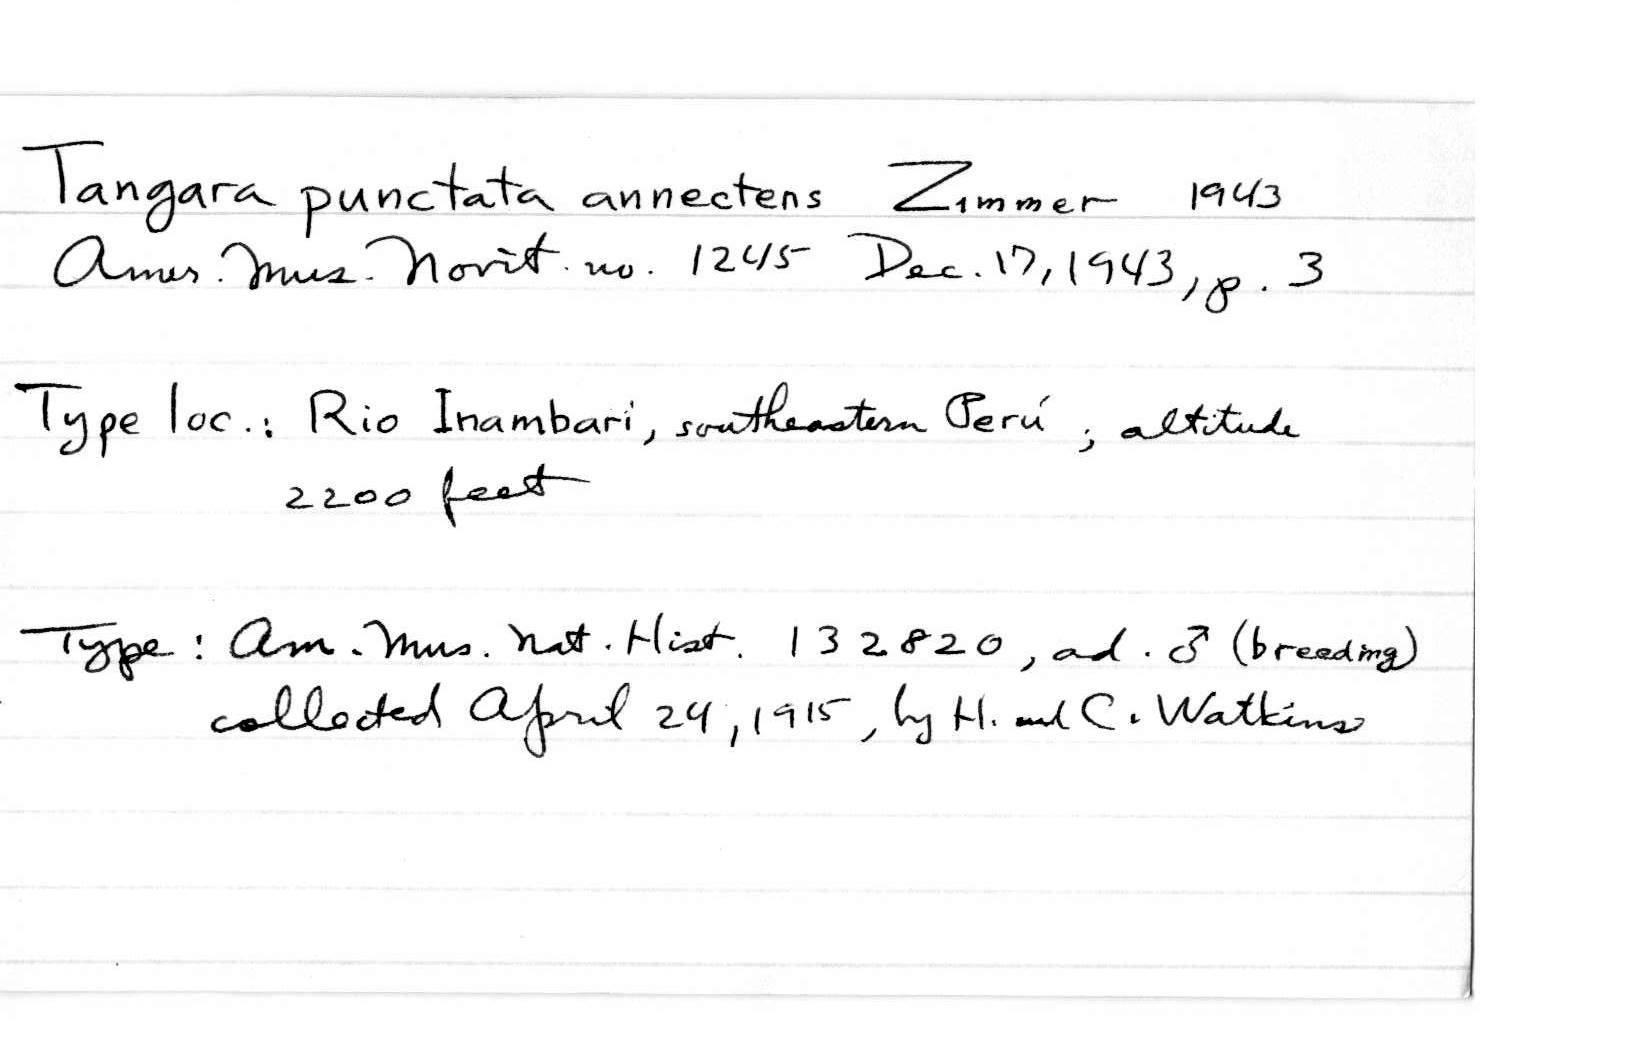 Tangara punctata annectens Zimmer 1943
Amer. Mus. Novit. no. 1245 Dec. 17, 1943, p. 3
Type loc.: Rio Inambari, southeastern Perú ; altitude
2200 feet
Type : Am. Mus. Nat. Hist. 132820, ad. ♂ (breeding)
collected April 24, 1915, by H. and C. Watkins